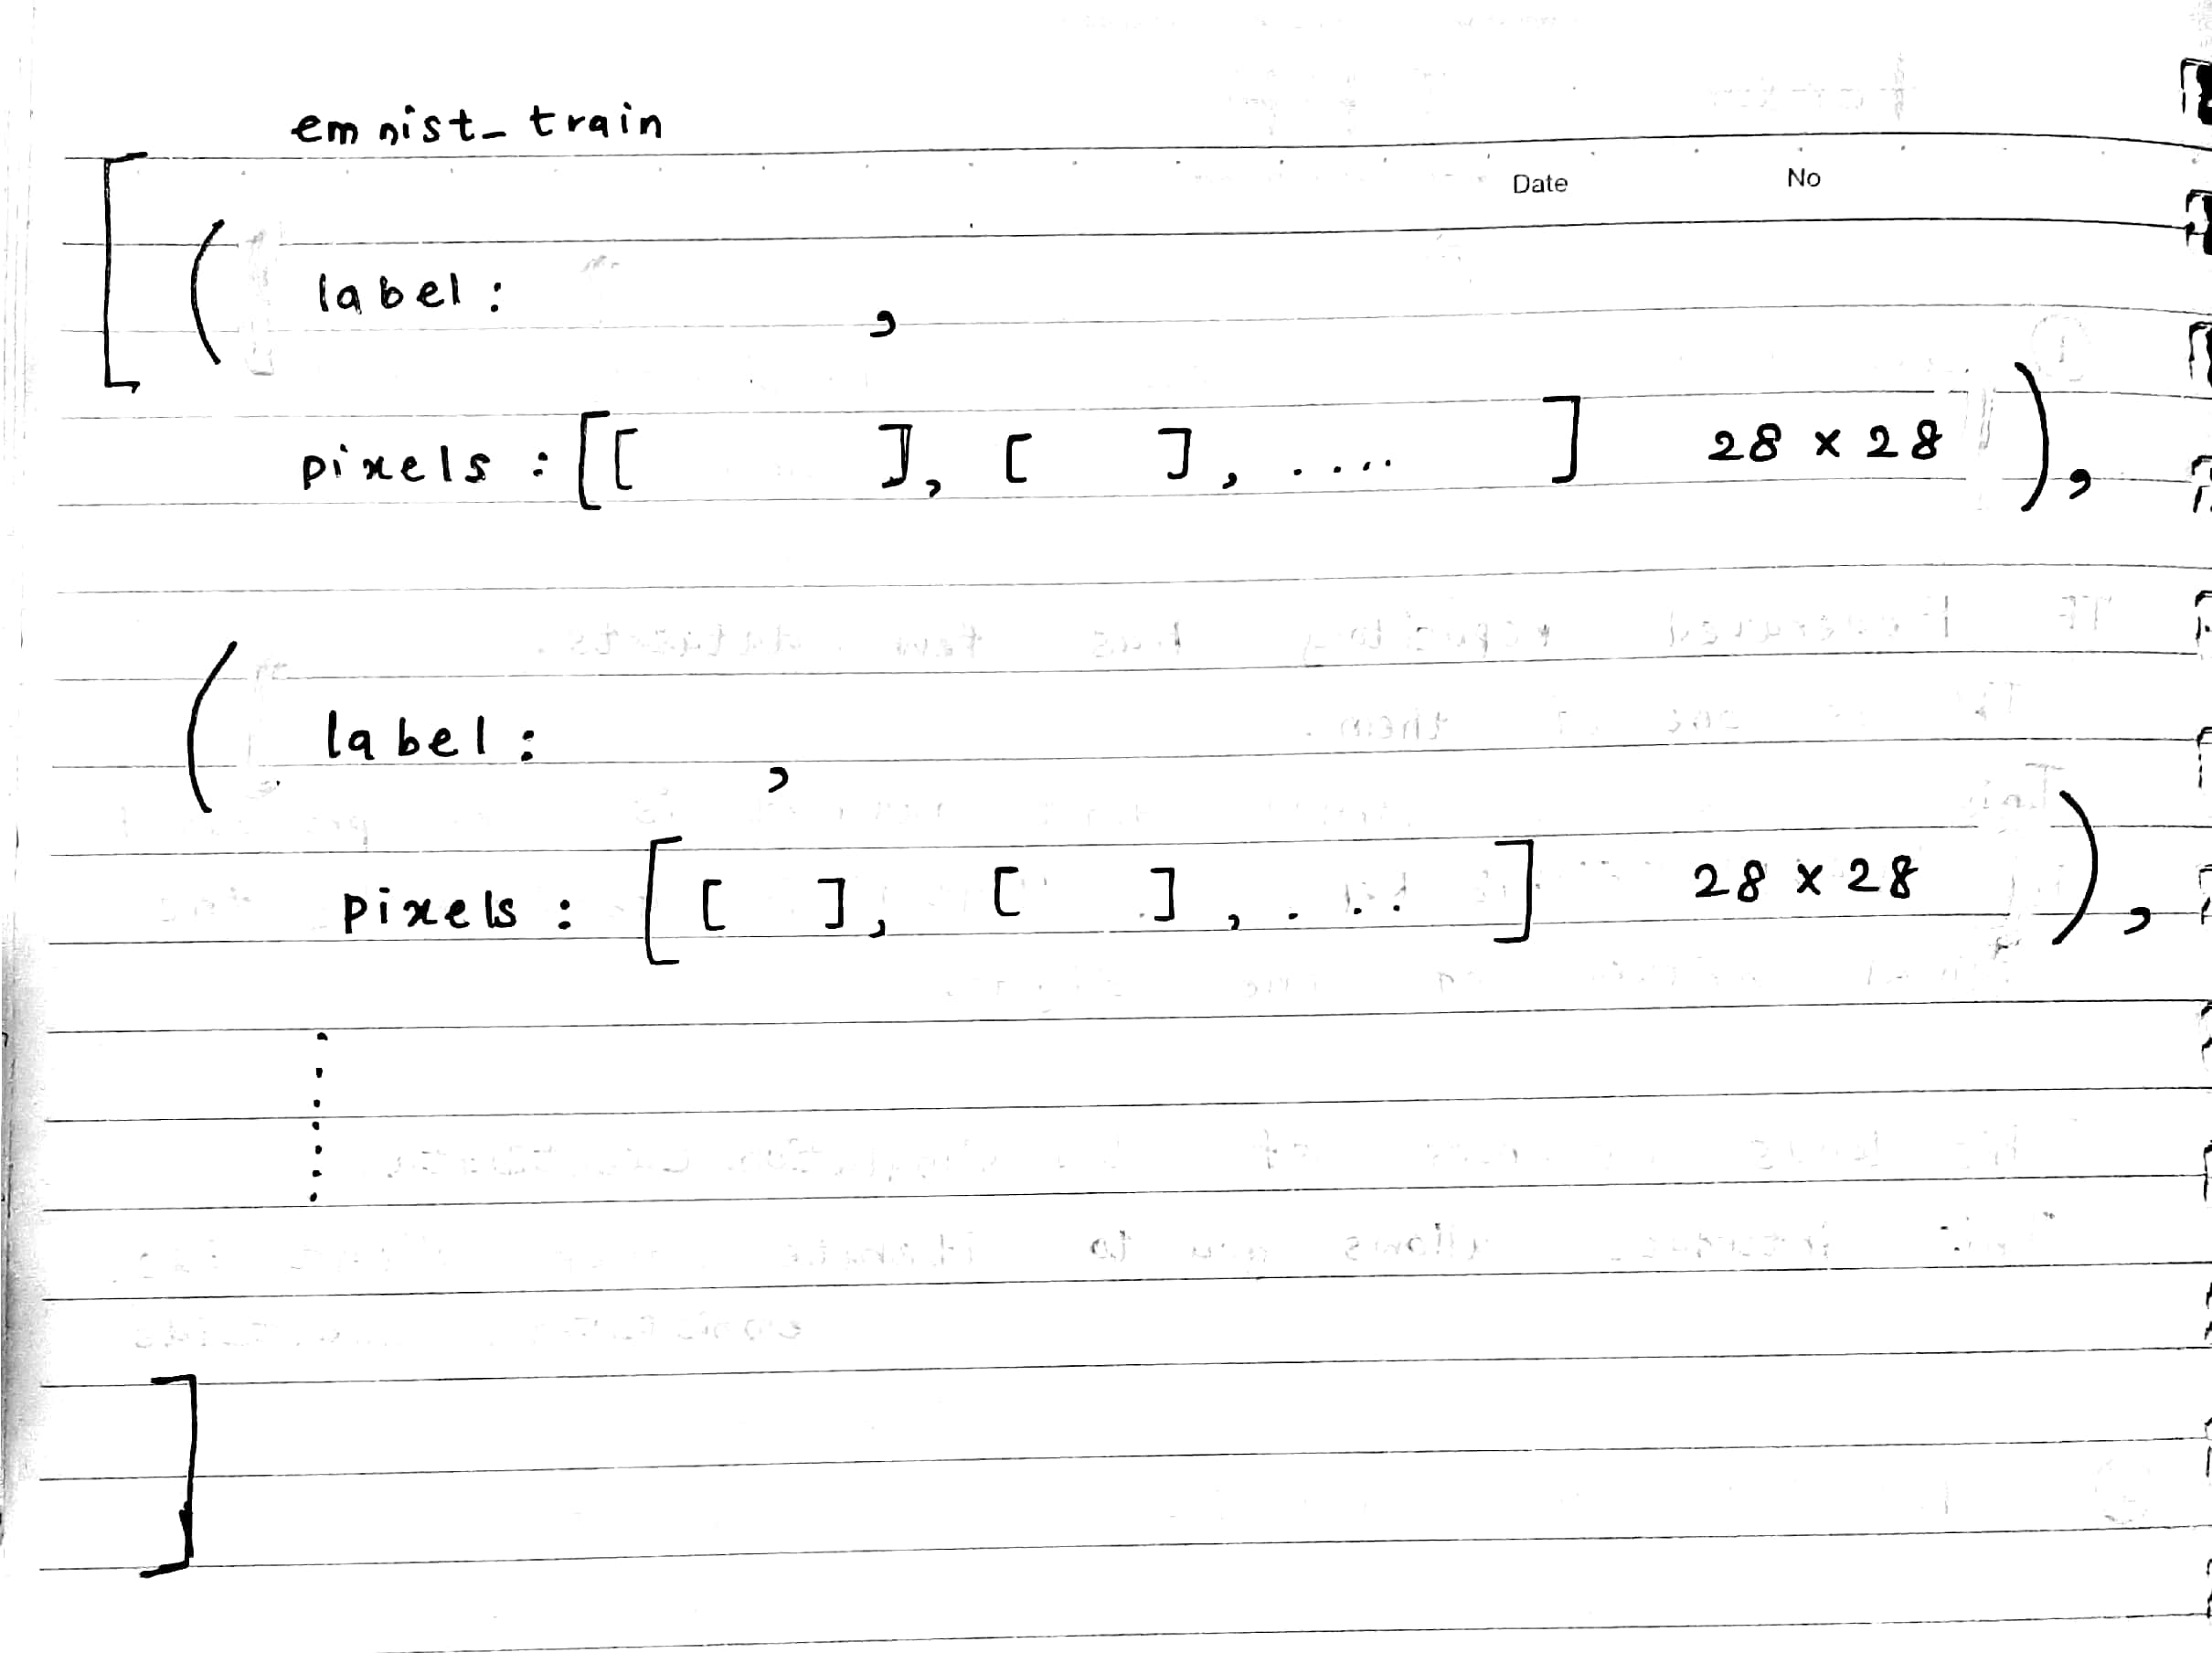 emnist_train
Date No
[ ( label: ,
pixels : [[ ], [ ], ..... ] 28 x 28 ),
( label: ,
pixels : [ [ ], [ ], .... ] 28 x 28 ),
.......
]